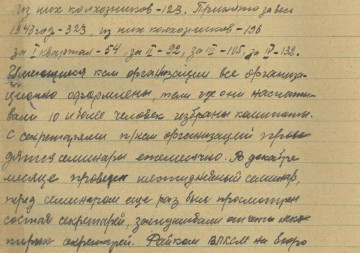 Из них колхозников - 123. Принято за весь
1943 год - 323, из них колхозников - 196
за I квартал - 54, за II - 92, за III - 105, за IV - 132.
Имеющиеся ксм организации все организа-
ционно оформлены, там где они насчиты-
вали 10 и более человек избраны комитеты.
С секретарями п/ксм организаций прово-
дятся семинары ежемесячно. В декабре
месяце проведен шестидневный семинар,
перед семинаром еще раз был просмотрен
состав секретарей, заслушивали отчеты неко-
торых секретарей. Райком ВЛКСМ на второ